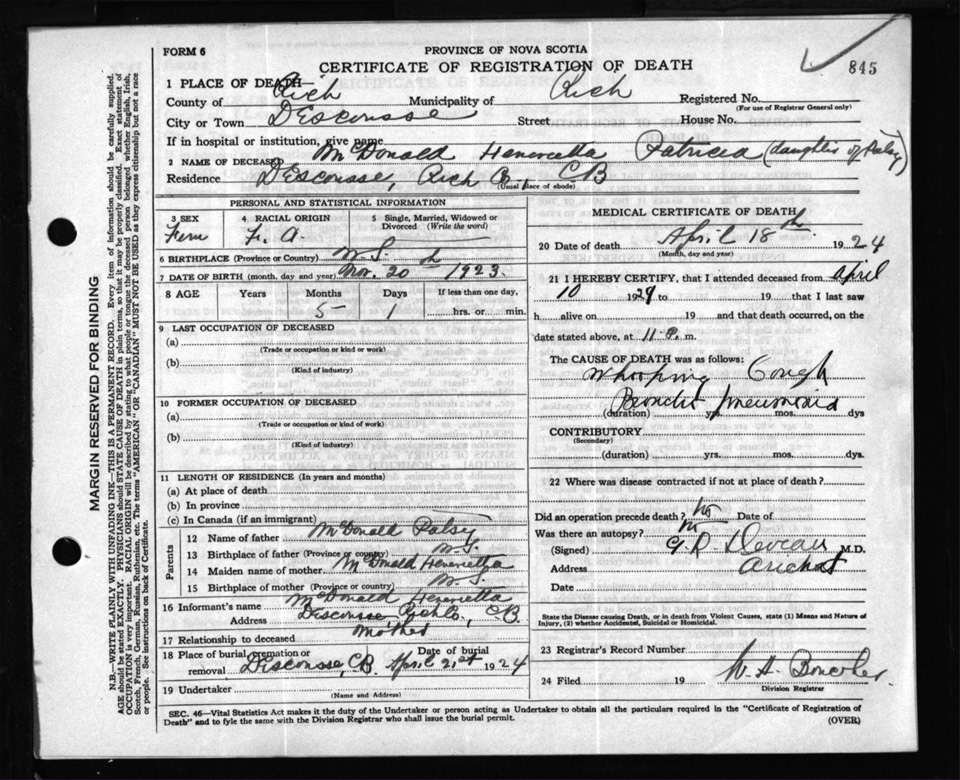 FORM 6
PROVINCE OF NOVA SCOTIA
CERTIFICATE OF REGISTRATION OF DEATH
845
1 PLACE OF DEATH
County of Rich Municipality of Rich Registered No.
(For use of Registrar General only)
City or Town D'Escousse Street House No.
If in hospital or institution, give name
2 NAME OF DECEASED McDonald Henrietta Patricia (daughter of Patsy)
Residence D'Escousse, Rich Co., CB
(Usual place of abode)
PERSONAL AND STATISTICAL INFORMATION
3 SEX Fem
4 RACIAL ORIGIN F. A.
5 Single, Married, Widowed or Divorced (Write the word)
6 BIRTHPLACE (Province or Country) N.S.
7 DATE OF BIRTH (month, day and year) Nov. 20th 1923
8 AGE Years Months 5 Days 1 If less than one day, hrs. or min.
9 LAST OCCUPATION OF DECEASED
(a)
(Trade or occupation or kind or work)
(b)
(Kind of industry)
10 FORMER OCCUPATION OF DECEASED
(a)
(Trade or occupation or kind or work)
(b)
(Kind of industry)
11 LENGTH OF RESIDENCE (In years and months)
(a) At place of death
(b) In province
(c) In Canada (if an immigrant)
Parents
12 Name of father McDonald Patsy
13 Birthplace of father (Province or country) N.S.
14 Maiden name of mother McDonald Henrietta
15 Birthplace of mother (Province or country) N.S.
16 Informant's name McDonald Henrietta
Address Descousse, Rich Co., CB.
17 Relationship to deceased Mother
18 Place of burial, cremation or removal Descousse, C.B. Date of burial April 21st 1924
19 Undertaker
(Name and Address)
MEDICAL CERTIFICATE OF DEATH
20 Date of death April 18th 1924
(Month, day and year)
21 I HEREBY CERTIFY, that I attended deceased from April
10 1924 to 19 that I last saw
h alive on 19 and that death occurred, on the
date stated above, at 11 P. m.
The CAUSE OF DEATH was as follows:
Whooping Cough
Broncho pneumonia
(duration) yrs. mos. dys
CONTRIBUTORY
(Secondary)
(duration) yrs. mos. dys.
22 Where was disease contracted if not at place of death?
Did an operation precede death? No Date of
Was there an autopsy? No
(Signed) G. R. Deveau M.D.
Address Arichat
Date
State the Disease causing Death, or in death from Violent Causes, state (1) Means and Nature of
Injury, (2) whether Accidental, Suicidal or Homicidal.
23 Registrar's Record Number
24 Filed 19
Division Registrar
SEC. 46—Vital Statistics Act makes it the duty of the Undertaker or person acting as Undertaker to obtain all the particulars required in the "Certificate of Registration of
Death" and to fyle the same with the Division Registrar who shall issue the burial permit.
(OVER)
MARGIN RESERVED FOR BINDING
N.B.—WRITE PLAINLY WITH UNFADING INK—THIS IS A PERMANENT RECORD. Every item of information should be carefully supplied.
AGE should be stated EXACTLY. PHYSICIANS should STATE CAUSE OF DEATH in plain terms, so that it may be properly classified. Exact statement of
OCCUPATION is very important. RACIAL ORIGIN will be described by stating to what people or tongue the deceased person belonged whether English, Irish,
Scotch, French, German, Russian, Ruthenian, etc. The terms "AMERICAN" OR "CANADIAN" MUST NOT BE USED as they express citizenship but not a race
or people. See instructions on back of Certificate.